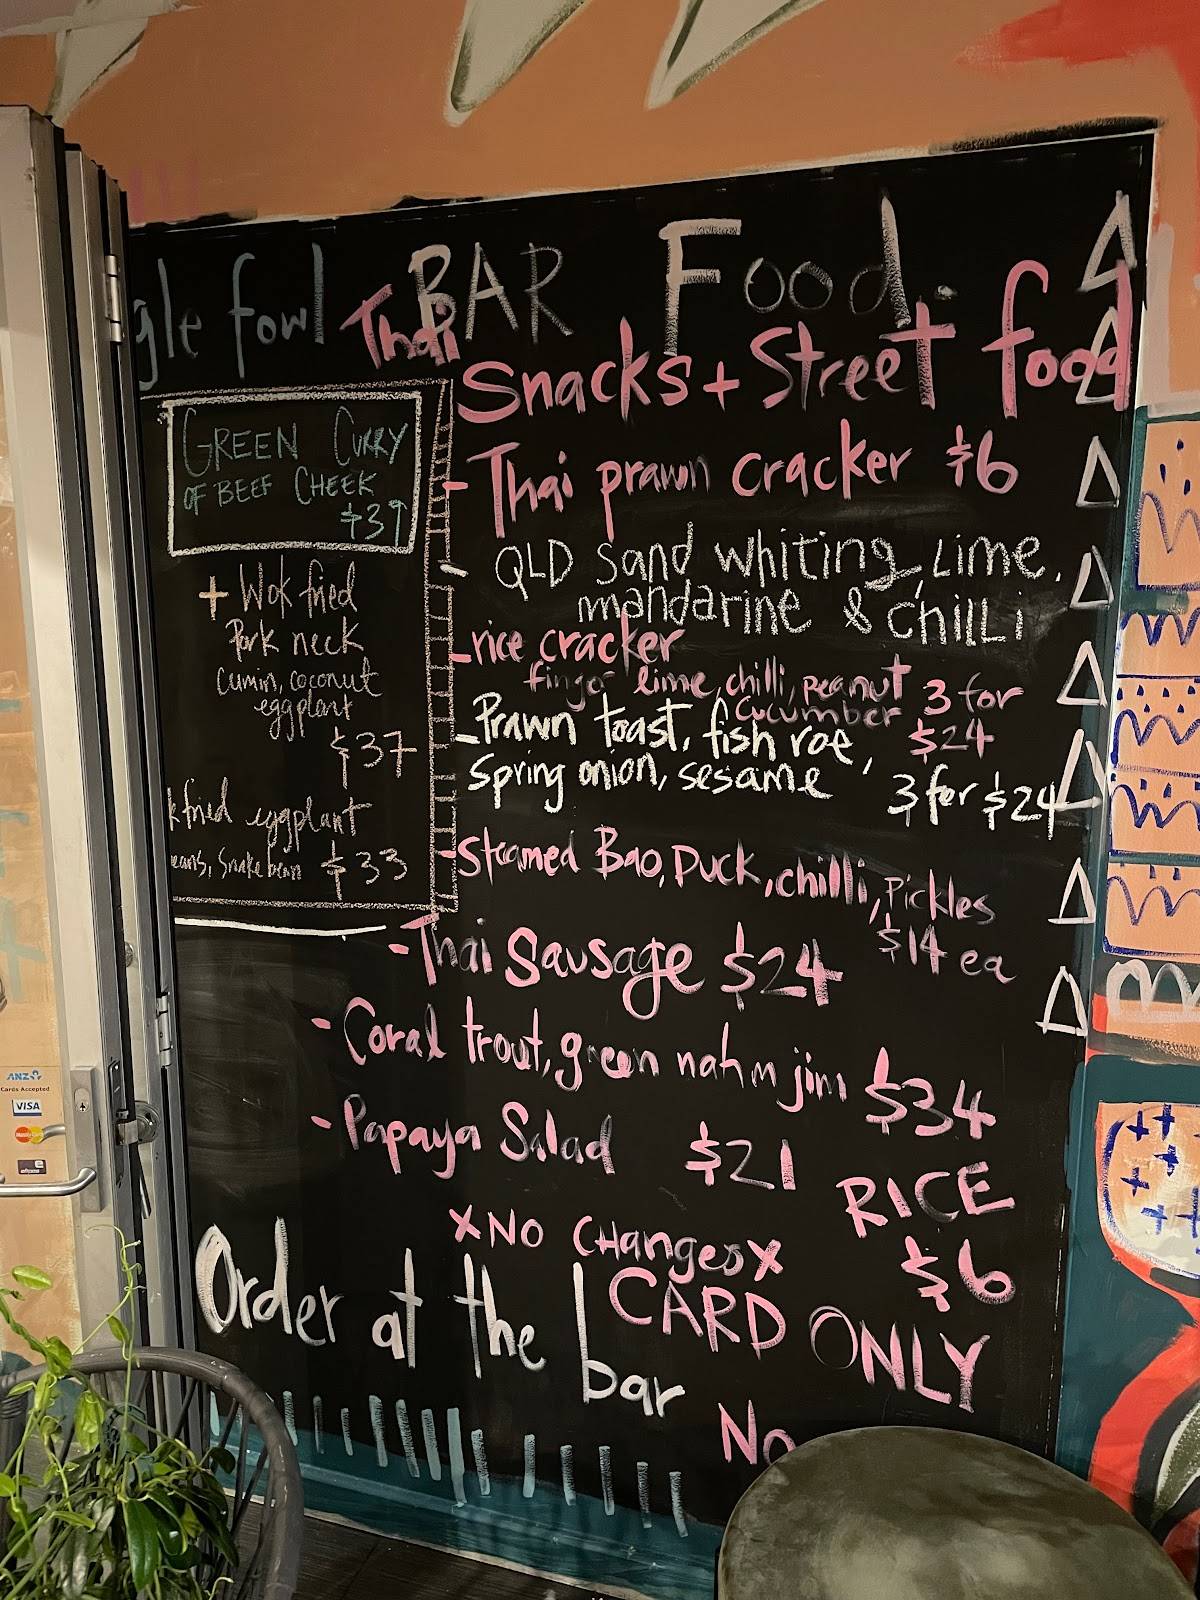 gle fowl
Thai BAR Food.
Snacks + Street food
GREEN CURRY
OF BEEF CHEEK
$37
+ Wok fried
Pork neck
Cumin, coconut
eggplant
$37
k fried eggplant
eans, Snake bean $33
- Thai prawn cracker $6
- QLD Sand whiting, Lime,
mandarine & chilli
- rice cracker
finger lime, chilli, peanut 3 for
cucumber $24
- Prawn toast, fish roe,
Spring onion, sesame 3 for $24
- Steamed Bao, Duck, chilli, Pickles
$14 ea
- Thai Sausage $24
- Coral trout, green nahm jim $34
- Papaya Salad $21
RICE
$6
x NO CHANGES x
Order at the bar
CARD ONLY
No
ANZ
Cards Accepted
VISA
MasterCard